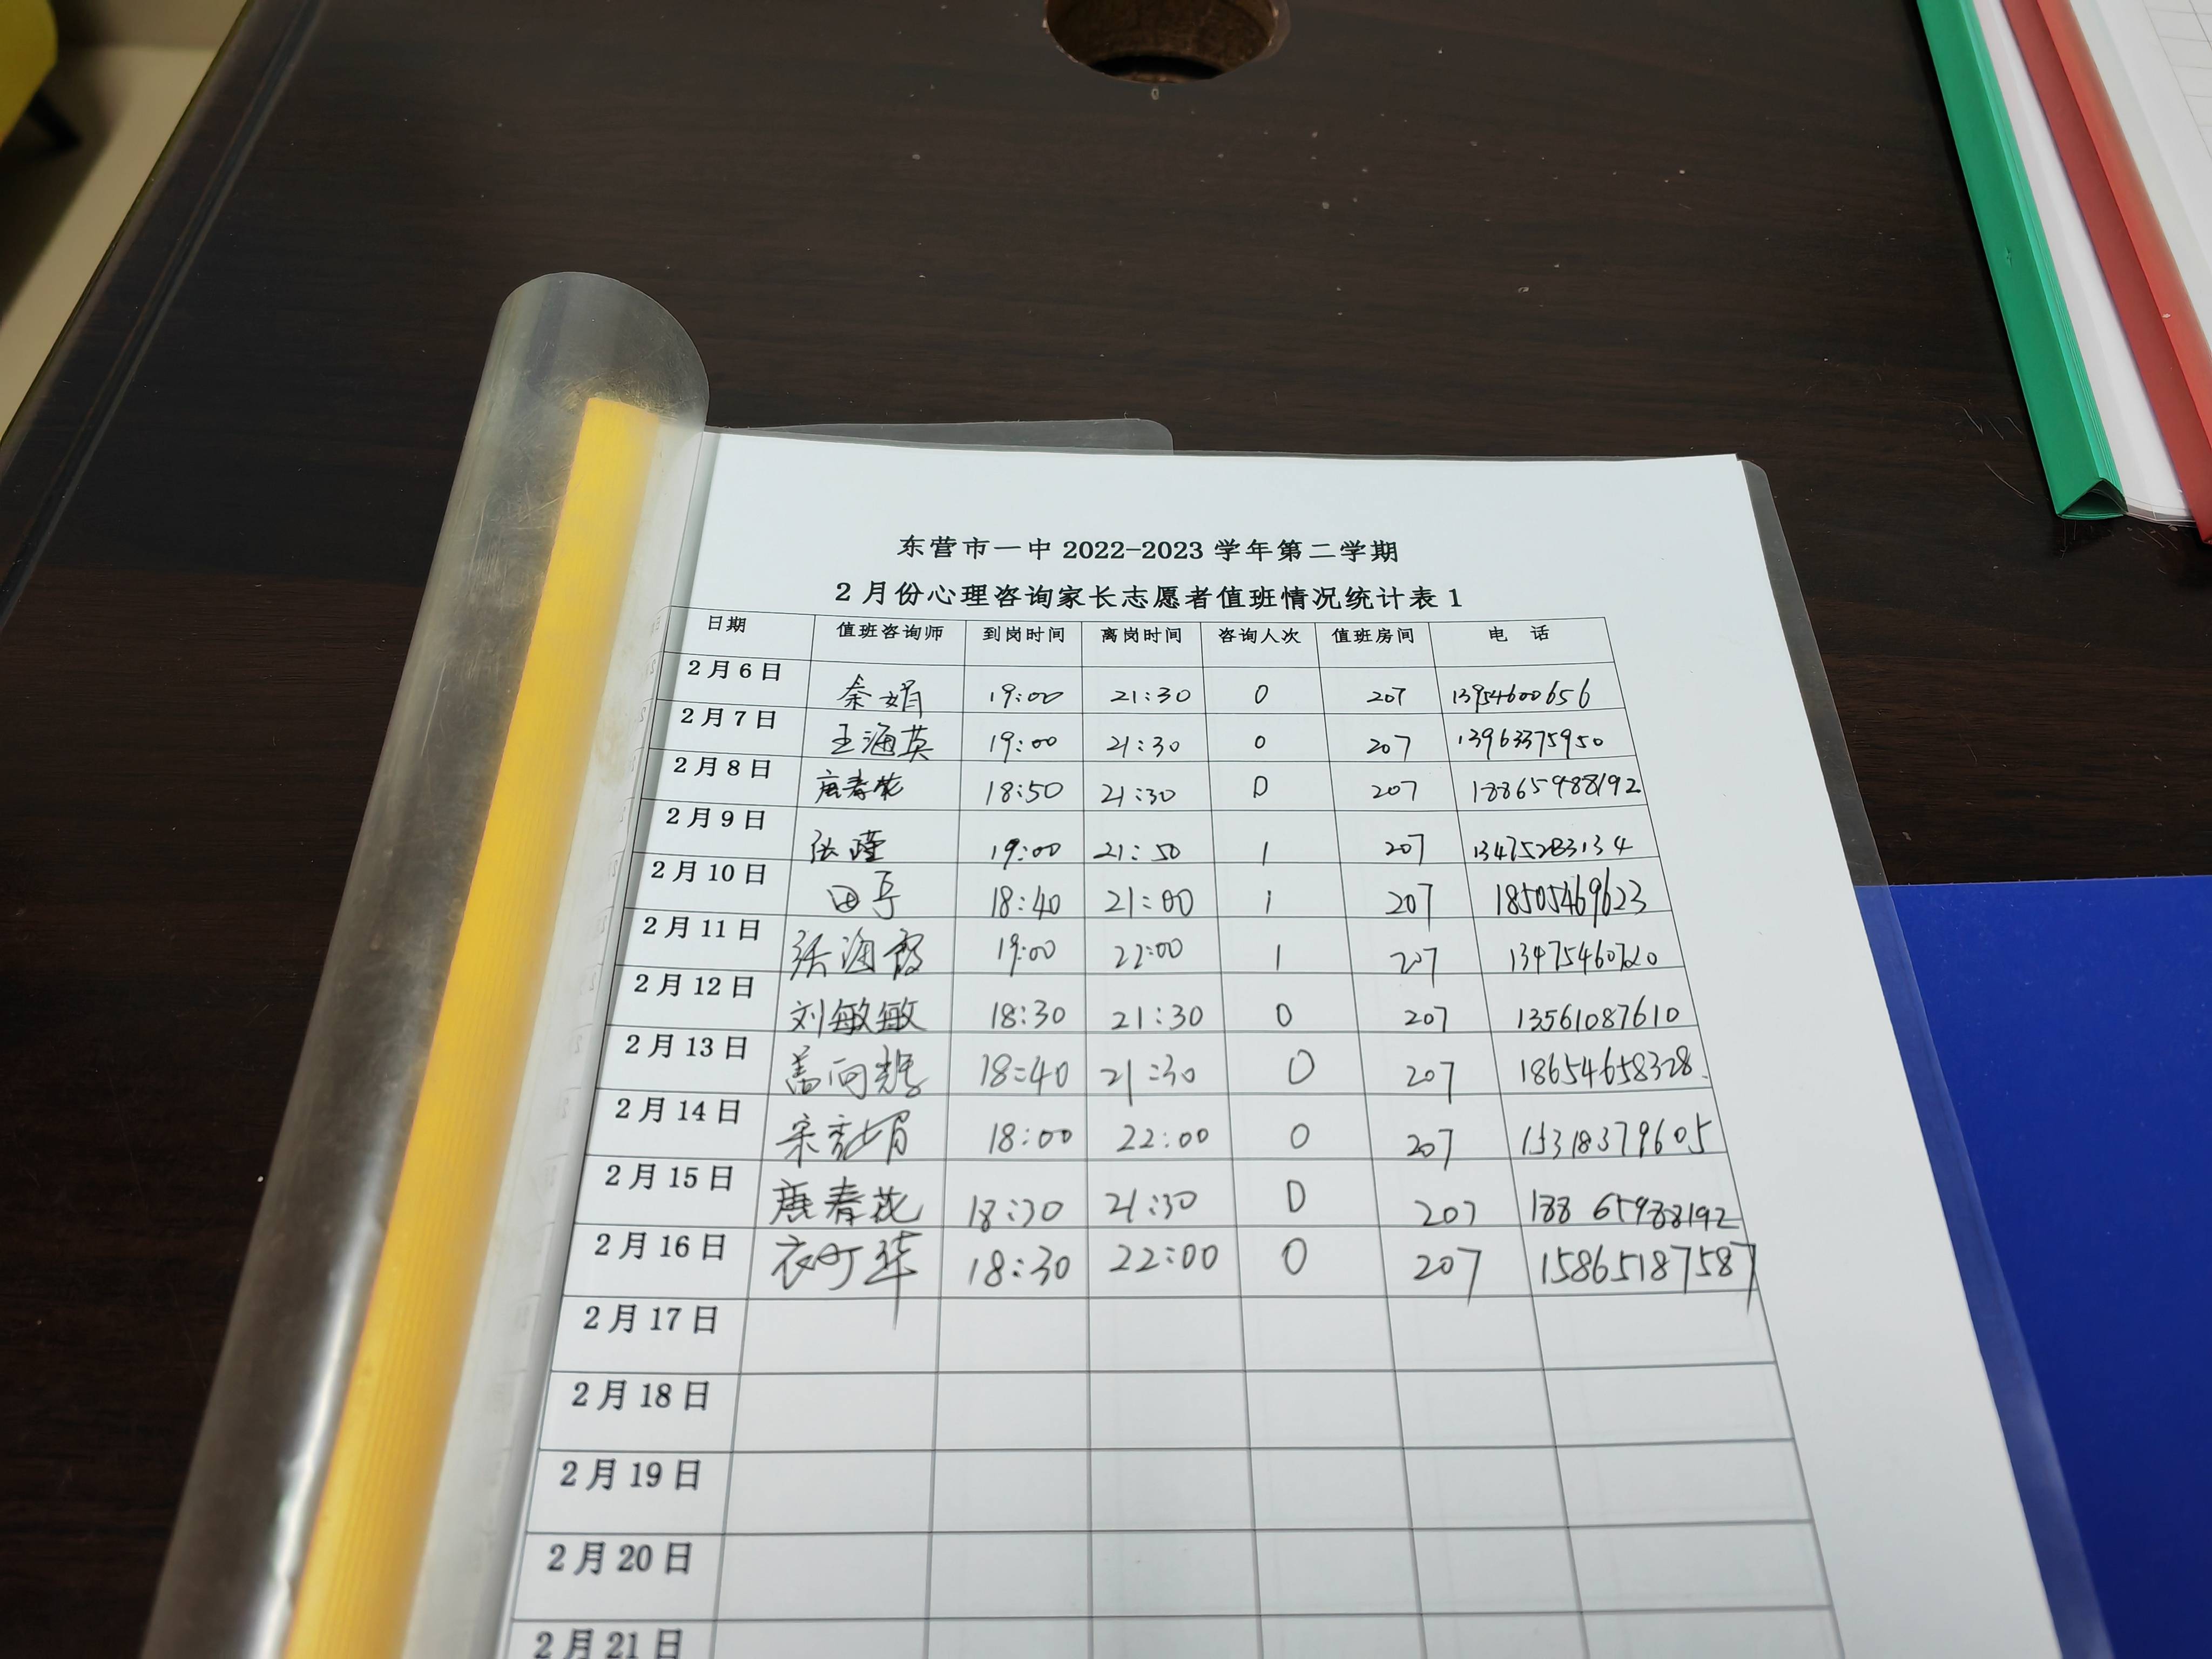 东营市一中 2022-2023 学年第二学期
2 月份心理咨询家长志愿者值班情况统计表 1
日期 值班咨询师 到岗时间 离岗时间 咨询人次 值班房间 电 话
2 月 6 日 秦娟 19:00 21:30 0 207 13954600656
2 月 7 日 王海英 19:00 21:30 0 207 13963375950
2 月 8 日 唐春花 18:50 21:30 0 207 18865988192
2 月 9 日 张瑾 19:00 21:50 1 207 13475283134
2 月 10 日 田亭 18:40 21:00 1 207 18505469623
2 月 11 日 张海霞 19:00 22:00 1 207 13475460720
2 月 12 日 刘敏敏 18:30 21:30 0 207 13561087610
2 月 13 日 盖向 18:40 21:30 0 207 18654658328
2 月 14 日 宋 娟 18:00 22:00 0 207 15318379605
2 月 15 日 唐春花 18:30 21:30 0 207 18865988192
2 月 16 日 衣 华 18:30 22:00 0 207 15865187587
2 月 17 日
2 月 18 日
2 月 19 日
2 月 20 日
2 月 21 日